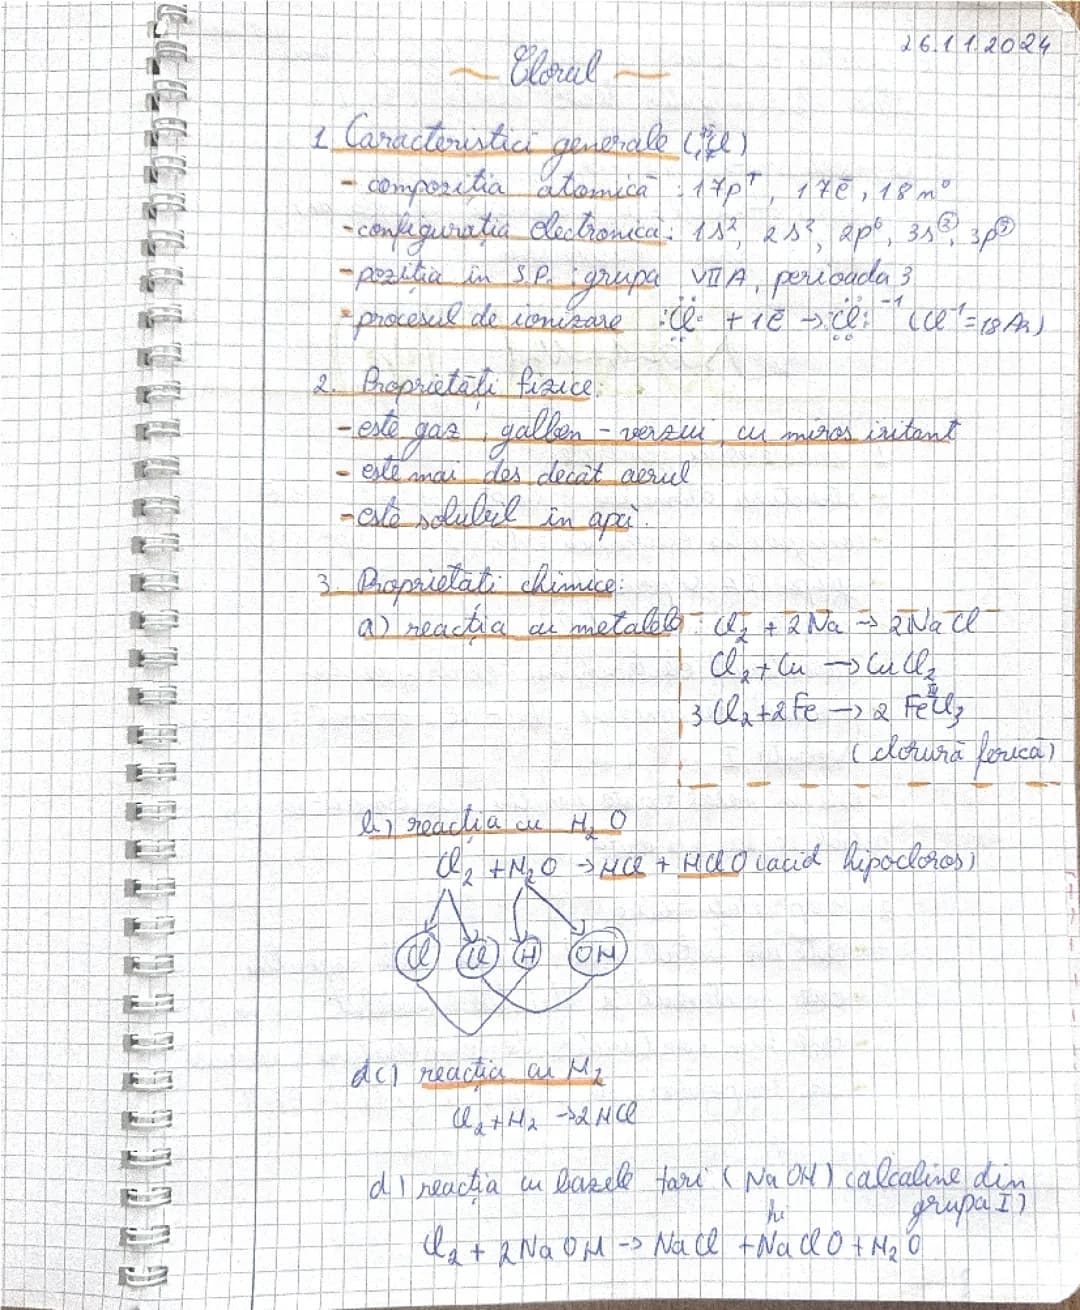 26.11.2024
~ Clorul ~
1. Caracteristici generale (³⁵₁₇Cl)
- compoziția atomică : 17p⁺, 17ē, 18n⁰
- configurația electronică: 1s², 2s², 2p⁶, 3s², 3p⁵
- poziția în S.P. : grupa VII A, perioada 3
- procesul de ionizare :Cl· + 1ē → :Cl:⁻¹ (Cl⁻¹ = 18Ar)
2. Proprietăți fizice:
- este gaz, galben - verzui, cu miros iritant
- este mai des decât aerul
- este solubil în apă.
3. Proprietăți chimice:
a) reacția cu metalele : Cl₂ + 2Na → 2NaCl
Cl₂ + Cu → CuCl₂
3Cl₂ + 2Fe → 2FeᴵᴵᴵCl₃
(clorură ferică)
b) reacția cu H₂O
Cl₂ + H₂O → HCl + HClO (acid hipocloros)
Cl Cl H OH
c) reacția cu H₂
Cl₂ + H₂ → 2HCl
d) reacția cu bazele tari (NaOH) (alcaline din
grupa I)
Cl₂ + 2NaOH → NaCl + NaClO + H₂O